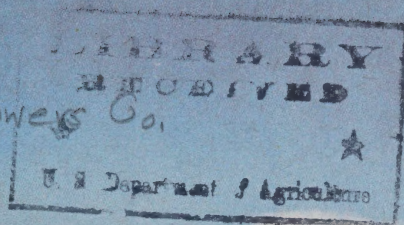 LIBRARY
RECEIVED
Co.
U. S Department of Agriculture